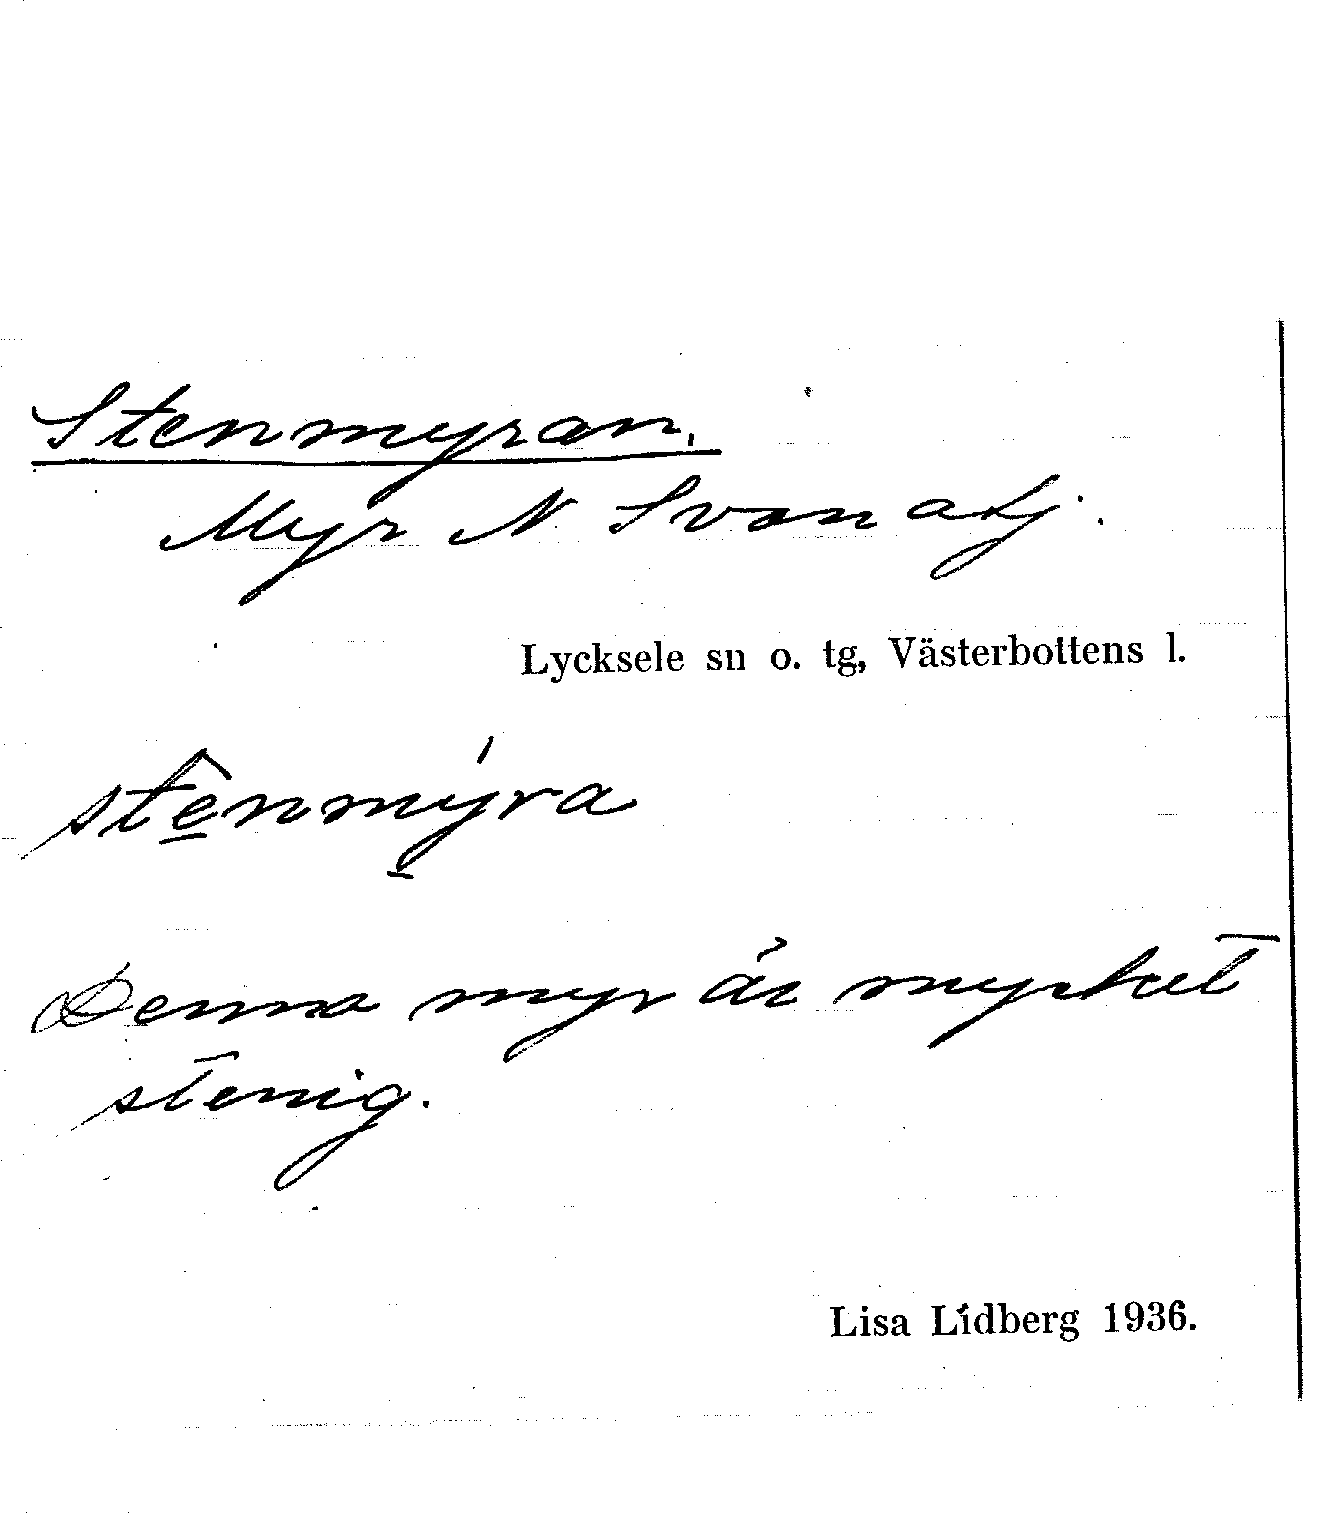 Stenmyran.
Myr N Svanatj.
Lycksele sn o. tg, Västerbottens l.
stê̱nmý̱ra
Denna myr är mycket
stenig.
Lisa Lidberg 1936.